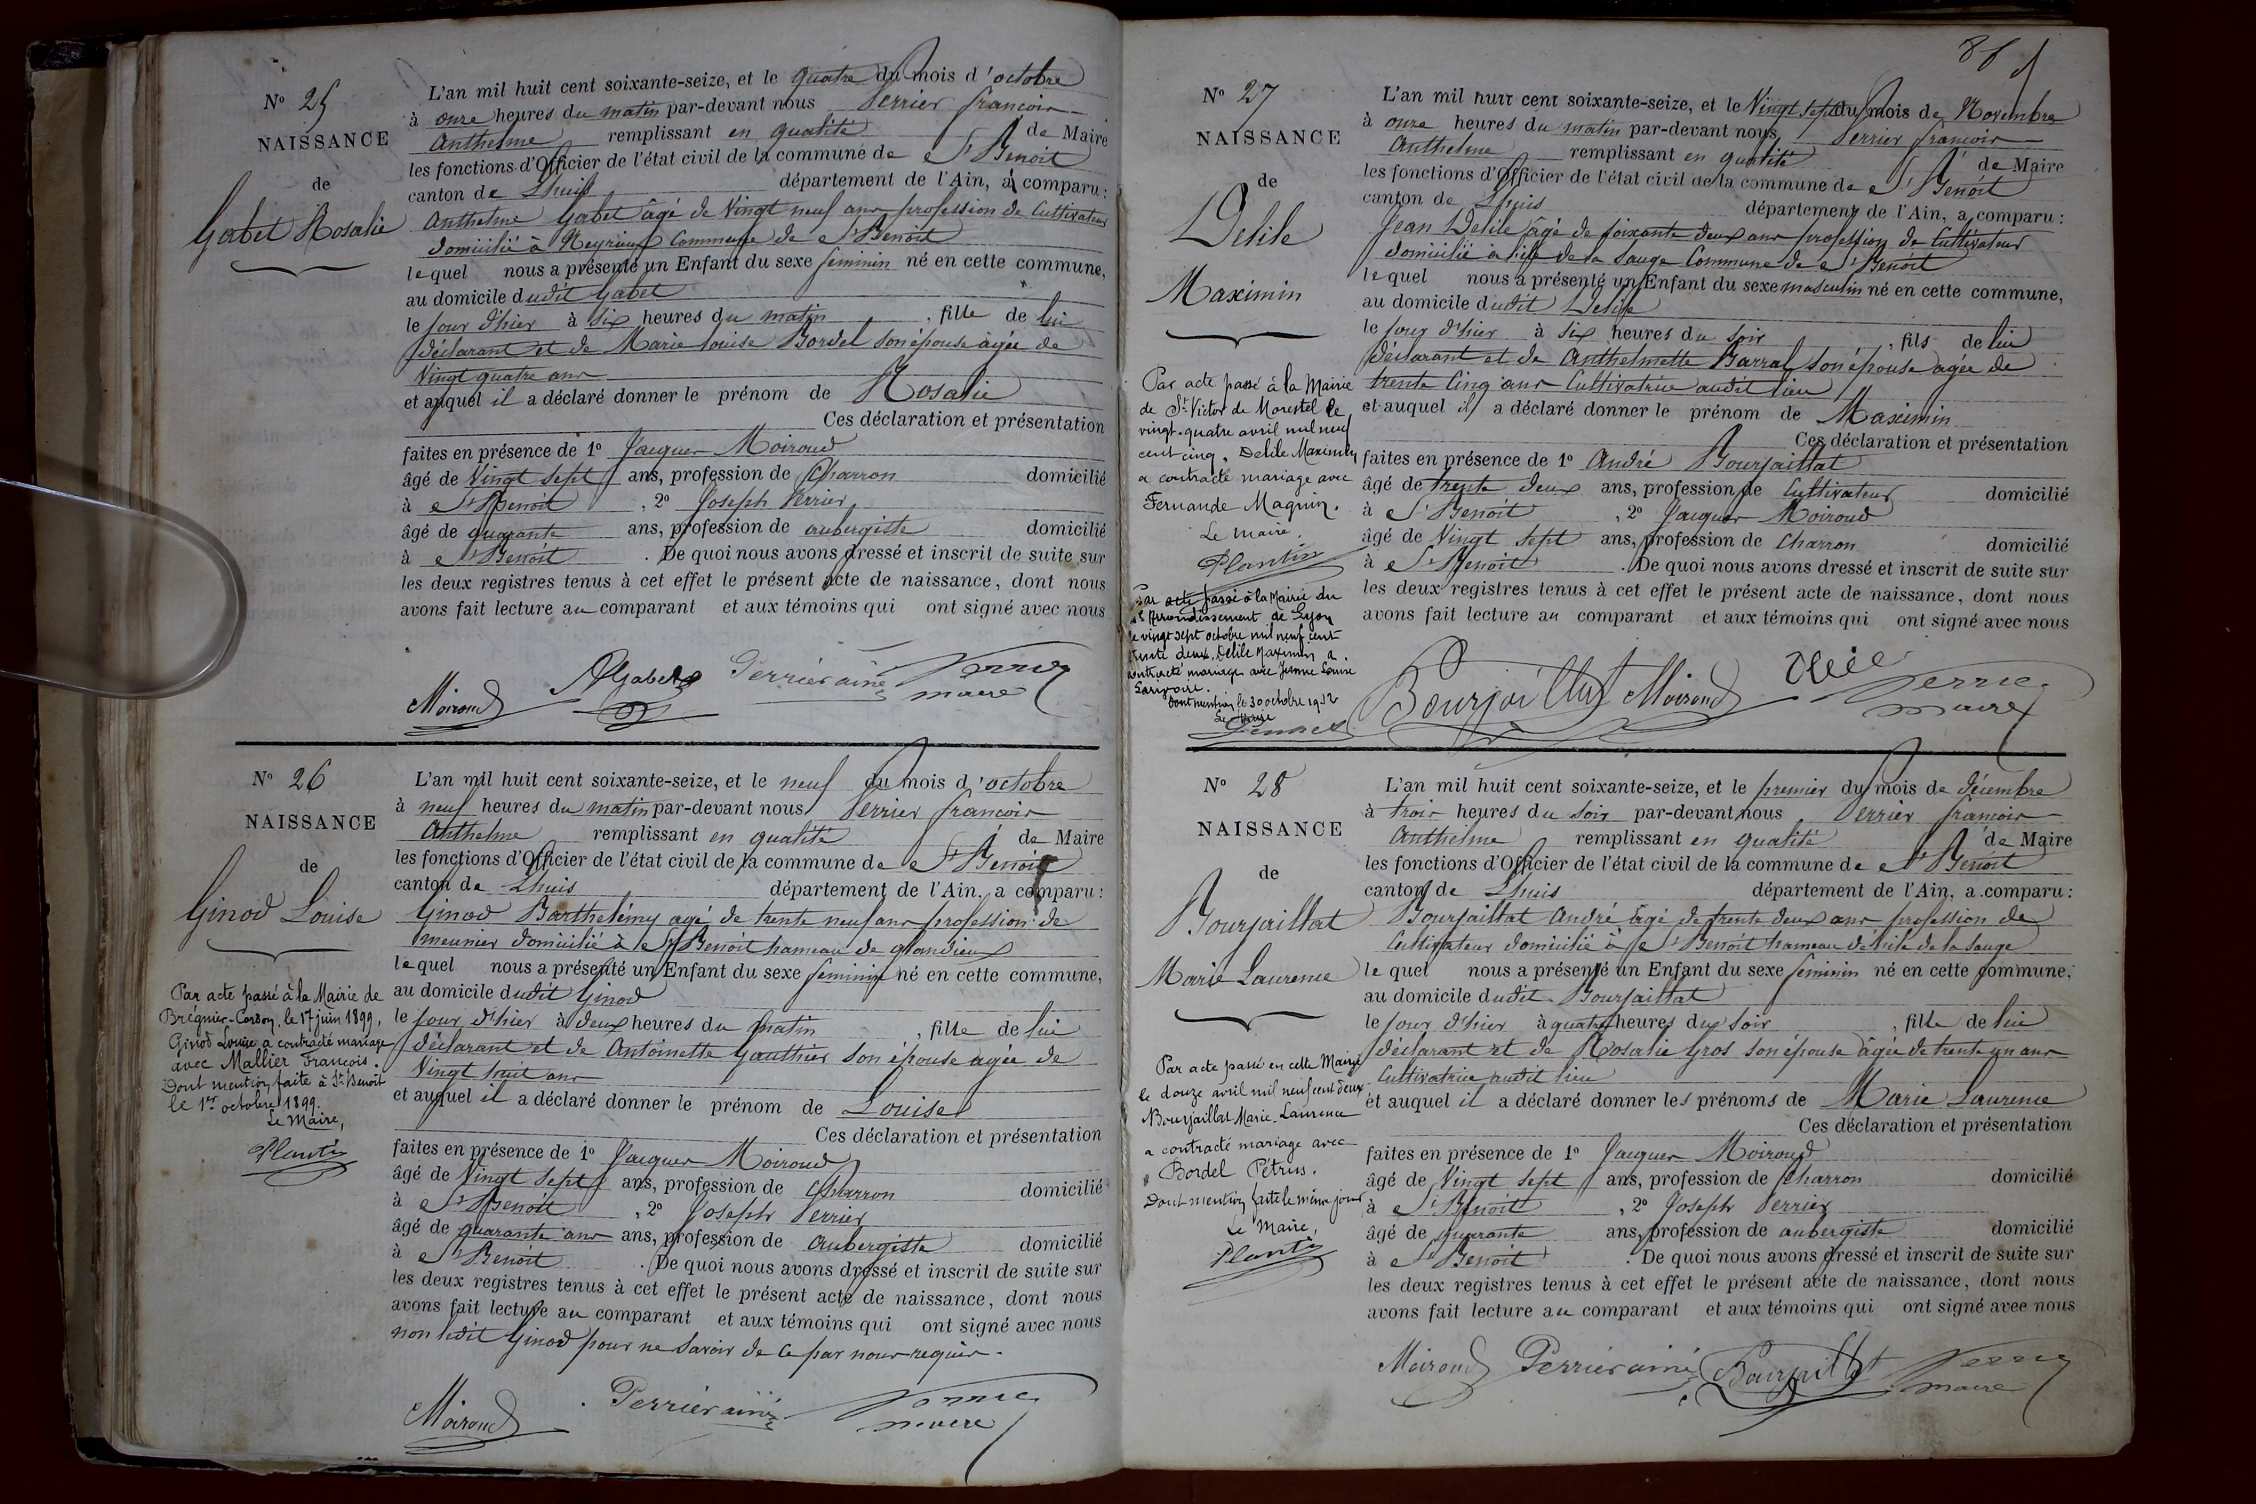 N° 25
NAISSANCE
de
Gabet Rosalie
L'an mil huit cent soixante-seize, et le quatre du mois d'octobre
à onze heures du matin par-devant nous Perrier francois
Anthelme remplissant en qualité de Maire
les fonctions d'Officier de l'état civil de la commune de St Benoit
canton de Lhuis département de l'Ain, a comparu :
Anthelme Gabet âgé de vingt neuf ans profession de Cultivateur
domicilié à Neyrieux Commune de St Benoit
lequel nous a présenté un Enfant du sexe féminin né en cette commune,
au domicile dudit Gabet
le jour d'hier à six heures du matin , fille de lui
déclarant et de Marie Louise Bordel son épouse agée de
Vingt quatre ans
et auquel il a déclaré donner le prénom de Rosalie
Ces déclaration et présentation
faites en présence de 1° Jacques Moiroud
âgé de Vingt sept ans, profession de Charron domicilié
à St Benoit , 2° Joseph Perrier
âgé de quarante ans, profession de aubergiste domicilié
à St Benoit . De quoi nous avons dressé et inscrit de suite sur
les deux registres tenus à cet effet le présent acte de naissance, dont nous
avons fait lecture au comparant et aux témoins qui ont signé avec nous
Moiroud AGabet Perrier ainé Perrier
maire
N° 26
NAISSANCE
de
Ginod Louise
Par acte passé à la Mairie de
Brégnier-Cordon, le 17 juin 1899,
Ginod Louise a contracté mariage
avec Mallier François.
Dont mention faite à St Benoit
le 1er octobre 1899.
Le Maire,
Plantin
L'an mil huit cent soixante-seize, et le neuf du mois d'octobre
à neuf heures du matin par-devant nous Perrier francois
Anthelme remplissant en qualité de Maire
les fonctions d'Officier de l'état civil de la commune de St Benoit
canton de Lhuis département de l'Ain, a comparu :
Ginod Barthelémy agé de trente neuf ans profession de
meunier domicilié à St Benoit hameau de glandieux
lequel nous a présenté un Enfant du sexe féminin né en cette commune,
au domicile dudit Ginod
le jour d'hier à deux heures du matin , fille de lui
déclarant et de Antoinette Gauthier son épouse agée de
Vingt huit ans
et auquel il a déclaré donner le prénom de Louise
Ces déclaration et présentation
faites en présence de 1° Jacques Moiroud
âgé de Vingt sept ans, profession de Charron domicilié
à St Benoit , 2° Joseph Perrier
âgé de quarante ans ans, profession de Aubergiste domicilié
à St Benoit . De quoi nous avons dressé et inscrit de suite sur
les deux registres tenus à cet effet le présent acte de naissance, dont nous
avons fait lecture au comparant et aux témoins qui ont signé avec nous
non ledit Ginod pour ne savoir de ce par nous requis.
Moiroud Perrier ainé Perrier
maire
N° 27
NAISSANCE
de
Delile
Maximin
Par acte passé à la Mairie
de St Victor de Morestel le
vingt-quatre avril mil neuf
cent cinq, Delile Maximin
a contracté mariage avec
Fernande Maguin.
Le maire.
Plantin
Par acte passé à la Mairie du
Arrondissement de Lyon
le vingt sept octobre mil neuf cent
trente deux, Delile Maximin a
contracté mariage avec Jeanne Louise
dont mention le 30 octobre 1932
Le Maire
L'an mil huit cent soixante-seize, et le Vingt sept du mois de Novembre
à onze heures du matin par-devant nous Perrier francois
Anthelme remplissant en qualité de Maire
les fonctions d'Officier de l'état civil de la commune de St Benoit
canton de Lhuis département de l'Ain, a comparu :
Jean Delile âgé de soixante deux ans profession de Cultivateur
domicilié à l'ile de la Sauge Commune de St Benoit
lequel nous a présenté un Enfant du sexe masculin né en cette commune,
au domicile dudit Delile
le jour d'hier à six heures du soir , fils de lui
déclarant et de Anthelmette Barral son épouse agée de
trente Cinq ans Cultivatrice audit lieu
et auquel il a déclaré donner le prénom de Maximin
Ces déclaration et présentation
faites en présence de 1° André Bourjaillat
âgé de trente deux ans, profession de Cultivateur domicilié
à St Benoit , 2° Jacques Moiroud
âgé de Vingt sept ans, profession de Charron domicilié
à St Benoit . De quoi nous avons dressé et inscrit de suite sur
les deux registres tenus à cet effet le présent acte de naissance, dont nous
avons fait lecture au comparant et aux témoins qui ont signé avec nous
Bourjaillat Moiroud Perrier
maire
N° 28
NAISSANCE
de
Bourjaillat
Marie Laurence
Par acte passé en cette Mairie
le douze avril mil neuf cent deux
Bourjaillat Marie-Laurence
a contracté mariage avec
Bordel Pétrus.
Dont mention faite le même jour
Le Maire,
Plantin
L'an mil huit cent soixante-seize, et le premier du mois de décembre
à trois heures du soir par-devant nous Perrier francois
Anthelme remplissant en qualité de Maire
les fonctions d'Officier de l'état civil de la commune de St Benoit
canton de Lhuis département de l'Ain, a comparu :
Bourjaillat André âgé de trente deux ans profession de
Cultivateur domicilié à St Benoit hameau de l'ile de la Sauge
lequel nous a présenté un Enfant du sexe féminin né en cette commune,
au domicile dudit Bourjaillat
le jour d'hier à quatre heures du soir , fille de lui
déclarant et de Rosalie Gros son épouse âgée de trente un ans
Cultivatrice audit lieu
et auquel il a déclaré donner les prénoms de Marie Laurence
Ces déclaration et présentation
faites en présence de 1° Jacques Moiroud
âgé de Vingt sept ans, profession de Charron domicilié
à St Benoit , 2° Joseph Perrier
âgé de quarante ans, profession de aubergiste domicilié
à St Benoit . De quoi nous avons dressé et inscrit de suite sur
les deux registres tenus à cet effet le présent acte de naissance, dont nous
avons fait lecture au comparant et aux témoins qui ont signé avec nous
Moiroud Perrier ainé Bourjaillat Perrier
maire